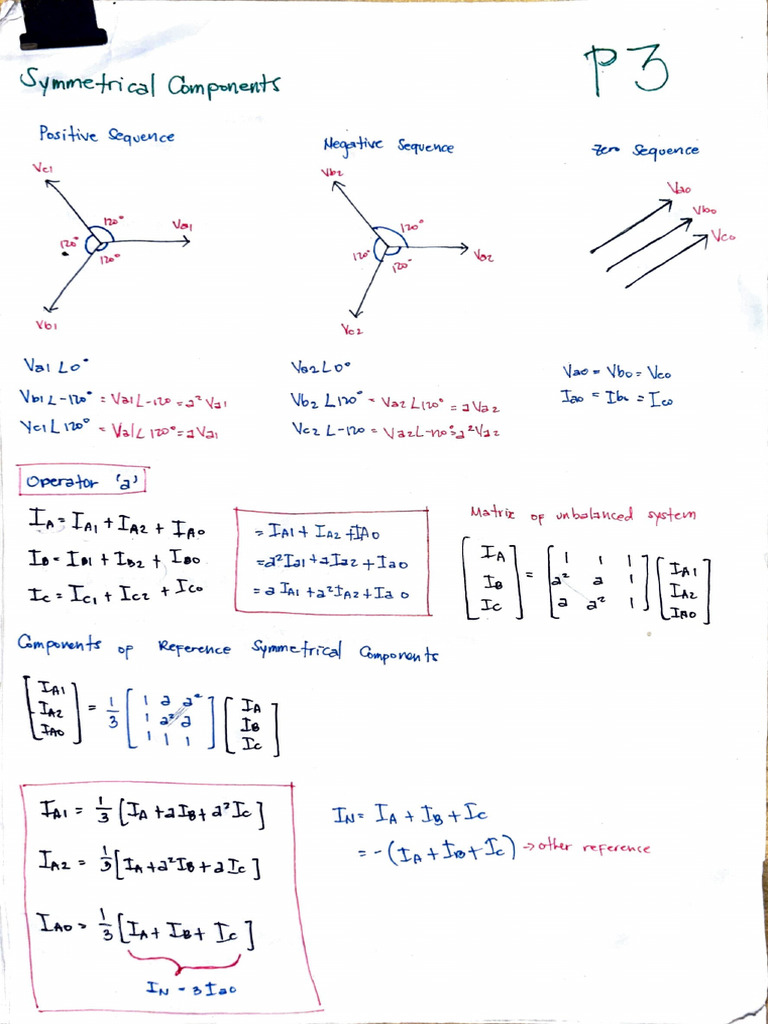 P3
Symmetrical Components
Positive Sequence
Negative Sequence
Zero Sequence
Vc1
120°
Va1
120°
120°
Vb1
Vb2
120°
Va2
120°
120°
Vc2
Va0
Vb0
Vc0
Va1∠0°
Vb1∠-120° = Va1∠-120 = a²Va1
Vc1∠120° = Va1∠120° = aVa1
Va2∠0°
Vb2∠120° = Va2∠120° = aVa2
Vc2∠-120 = Va2∠-120° = a²Va2
Va0 = Vb0 = Vc0
Ia0 = Ib0 = Ic0
Operator 'a'
IA = IA1 + IA2 + IA0
IB = IB1 + IB2 + IB0
IC = IC1 + IC2 + IC0
= IA1 + IA2 + IA0
= a²Ia1 + aIa2 + Ia0
= a IA1 + a²IA2 + Ia0
Matrix of unbalanced system
[IA] = [1 1 1] [IA1]
[IB] [a² a 1] [IA2]
[IC] [a a² 1] [IA0]
Components of Reference Symmetrical Components
[IA1] = 1/3 [1 a a²] [IA]
[IA2] [1 a² a] [IB]
[IA0] [1 1 1] [IC]
IA1 = 1/3 [IA + aIB + a²IC]
IA2 = 1/3 [IA + a²IB + aIC]
IA0 = 1/3 [IA + IB + IC]
IN = 3Ia0
IN = IA + IB + IC
= -(IA + IB + IC) → other reference